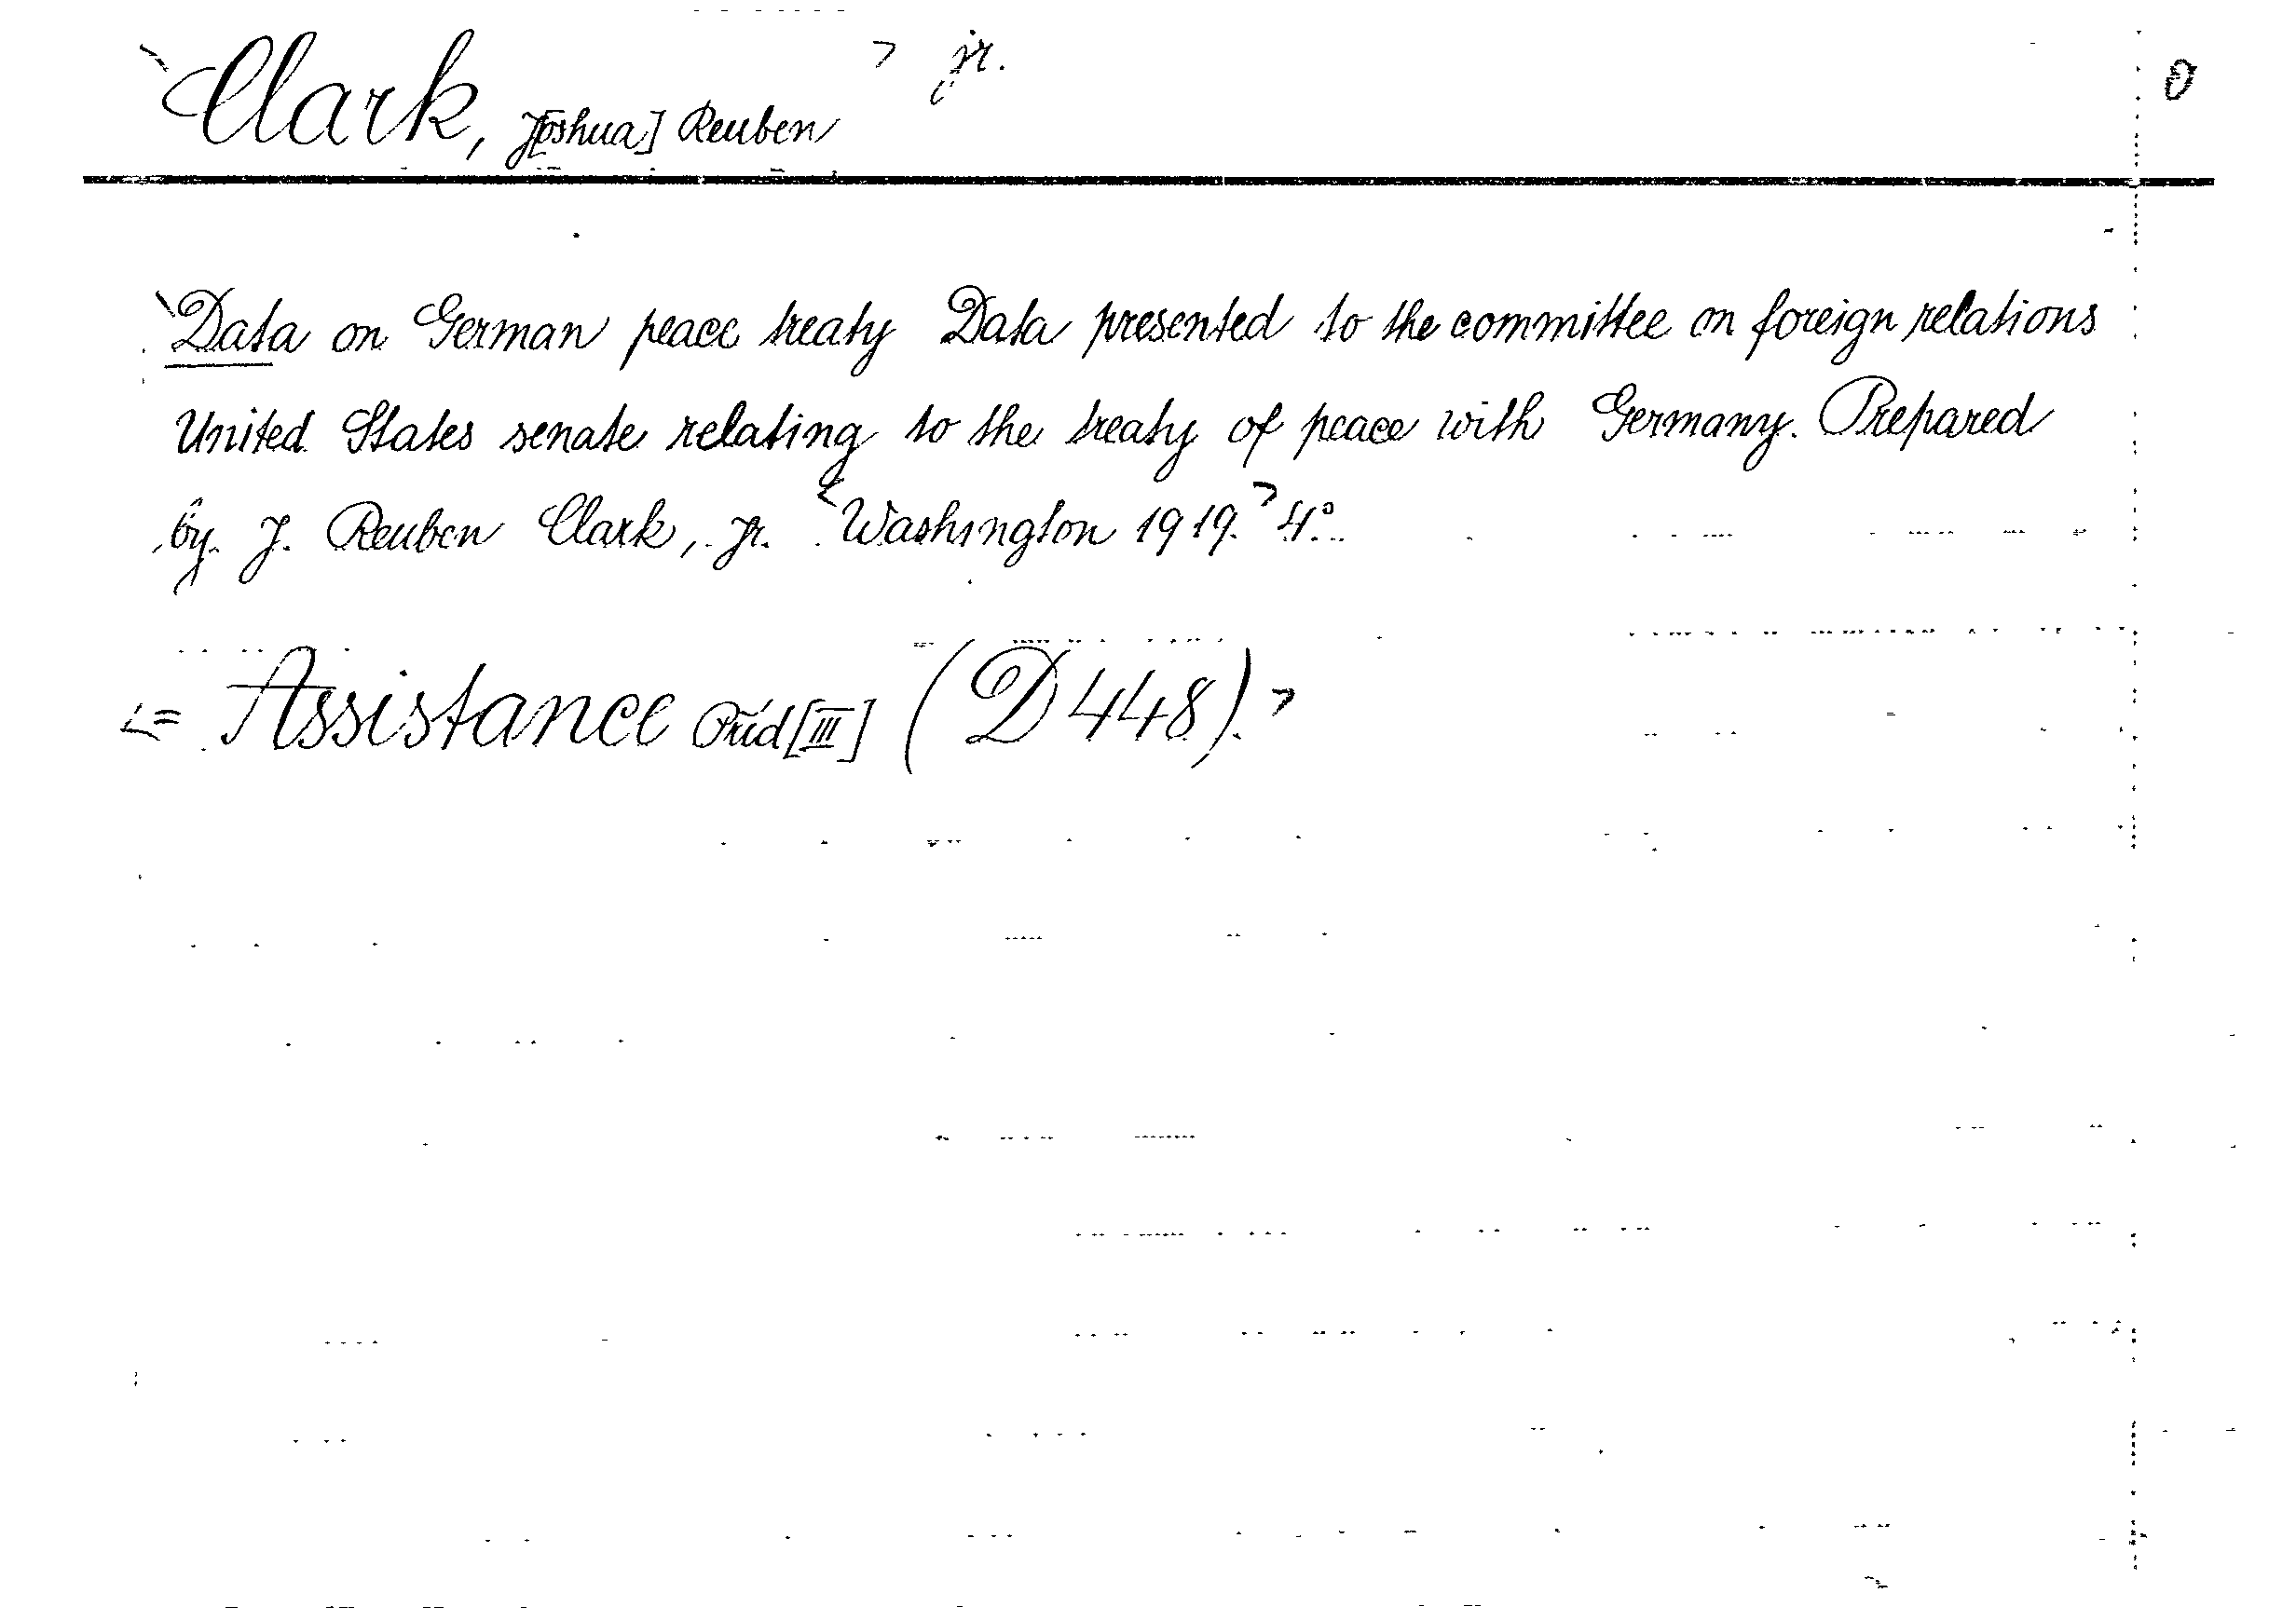 Clark, J[oshua] Reuben > jr.
Data on German peace treaty Data presented to the committee on foreign relations
United States senate relating to the treaty of peace with Germany. Prepared
by J. Reuben Clark, jr. <Washington 1919.> 4°.
<= Assistance Präd[III] (D 448).>